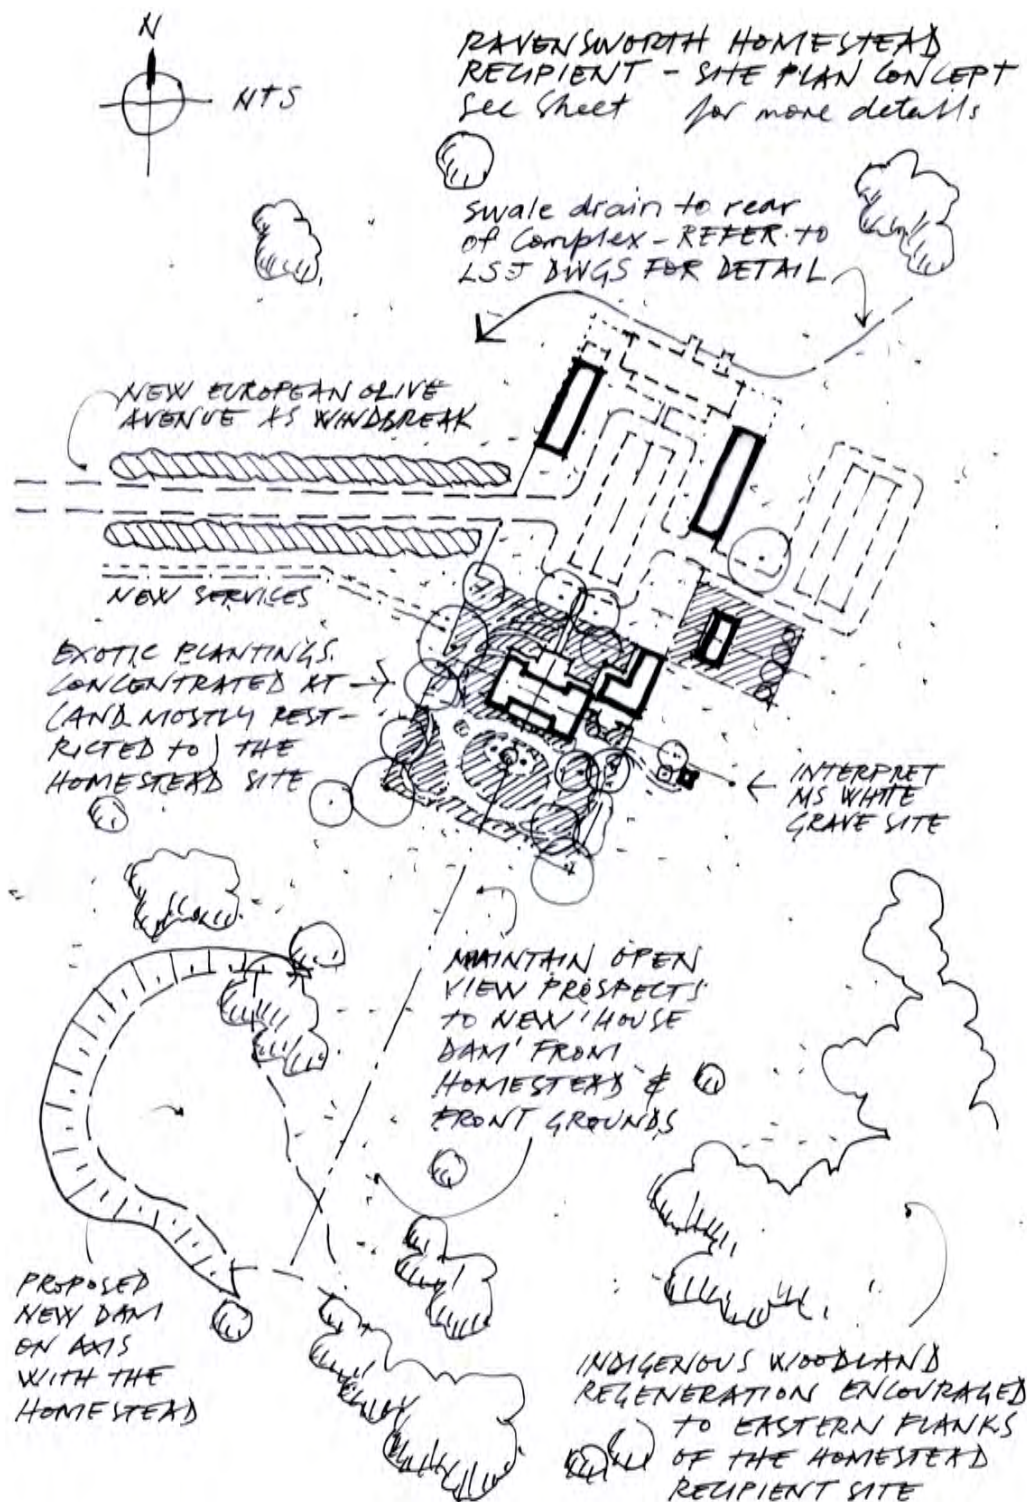 N
NTS
RAVENSWORTH HOMESTEAD
RECIPIENT - SITE PLAN CONCEPT
See Sheet for more details
swale drain to rear
of Complex - REFER TO
LSJ DWGS FOR DETAIL
NEW EUROPEAN OLIVE
AVENUE AS WINDBREAK
NEW SERVICES
EXOTIC PLANTINGS
CONCENTRATED AT
(AND MOSTLY REST-
RICTED TO) THE
HOMESTEAD SITE
INTERPRET
MS WHITE
GRAVE SITE
MAINTAIN OPEN
VIEW PROSPECTS
TO NEW 'HOUSE
DAM' FROM
HOMESTEAD &
FRONT GROUNDS
PROPOSED
NEW DAM
ON AXIS
WITH THE
HOMESTEAD
INDIGENOUS WOODLAND
REGENERATION ENCOURAGED
TO EASTERN FLANKS
OF THE HOMESTEAD
RECIPIENT SITE